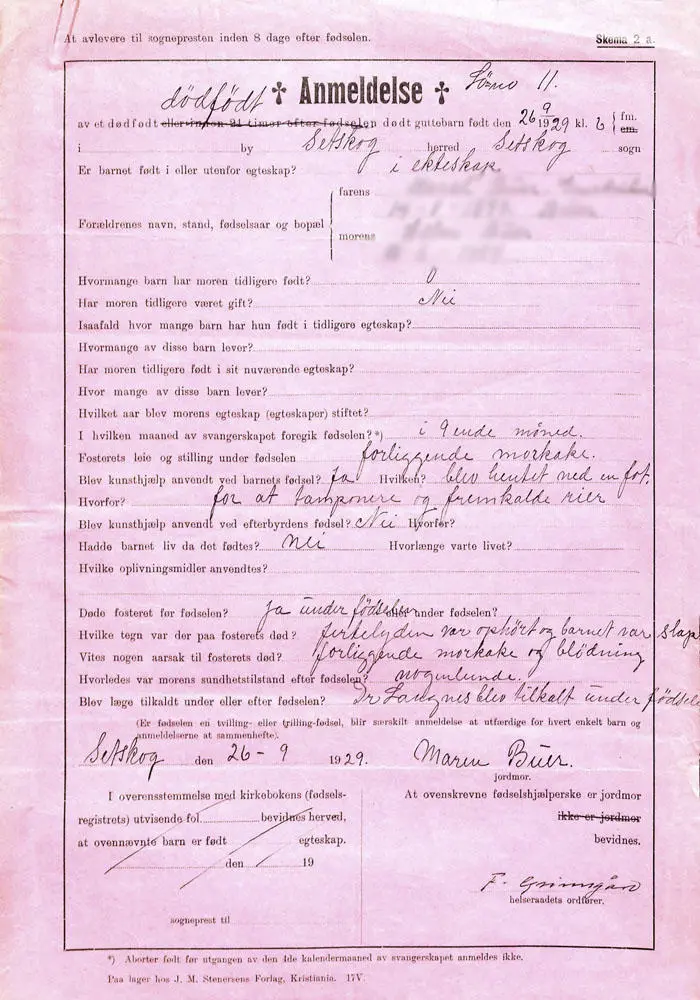 At avlevere til sognepresten inden 8 dage efter fødselen.
Skema 2 a.
dödfödt ✝ Anmeldelse ✝ 11.
av et dødfødt eller inden 24 timer efter fødselen dødt guttebarn født den 26/9 1929 kl. 6 { fm. em.
i by Setskog herred Setskog sogn
Er barnet født i eller utenfor egteskap? i ekteskap
farens
Forældrenes navn, stand, fødselsaar og bopæl
morens
Hvormange barn har moren tidligere født? 0
Har moren tidligere været gift? Nei
Isaafald hvor mange barn har hun født i tidligere egteskap?
Hvormange av disse barn lever?
Har moren tidligere født i sit nuværende egteskap?
Hvor mange av disse barn lever?
Hvilket aar blev morens egteskap (egteskaper) stiftet?
I hvilken maaned av svangerskapet foregik fødselen?*) i 9ende måned.
Fosterets leie og stilling under fødselen forliggende morkake.
Blev kunsthjælp anvendt ved barnets fødsel? Ja Hvilken? blev hentet ned en fot.
Hvorfor? for at tamponere og fremkalde rier
Blev kunsthjælp anvendt ved efterbyrdens fødsel? Nei Hvorfor?
Hadde barnet liv da det fødtes? Nei Hvorlænge varte livet?
Hvilke oplivningsmidler anvendtes?
Døde fosteret før fødselen? ja under fødselen eller under fødselen?
Hvilke tegn var der paa fosterets død? fertelyden var ophört og barnet var slap
Vites nogen aarsak til fosterets død? forliggende morkake og blödning
Hvorledes var morens sundhetstilstand efter fødselen? nogenlunde.
Blev læge tilkaldt under eller efter fødselen? Dr Langnes blev tilkalt under fødselen
(Er fødselen en tvilling- eller trilling-fødsel, blir særskilt anmeldelse at utfærdige for hvert enkelt barn og
anmeldelserne at sammenhefte).
Setskog den 26 - 9 1929. Maren Buer.
jordmor.
I overensstemmelse med kirkebokens (fødsels-
registrets) utvisende fol. bevidnes herved,
at ovennævnte barn er født egteskap.
den 19
sogneprest til
At ovenskrevne fødselshjælperske er jordmor
ikke er jordmor
bevidnes.
F. Grimsgård
helseraadets ordfører.
*) Aborter født før utgangen av den 4de kalendermaaned av svangerskapet anmeldes ikke.
Paa lager hos J. M. Stenersens Forlag, Kristiania. 17V.